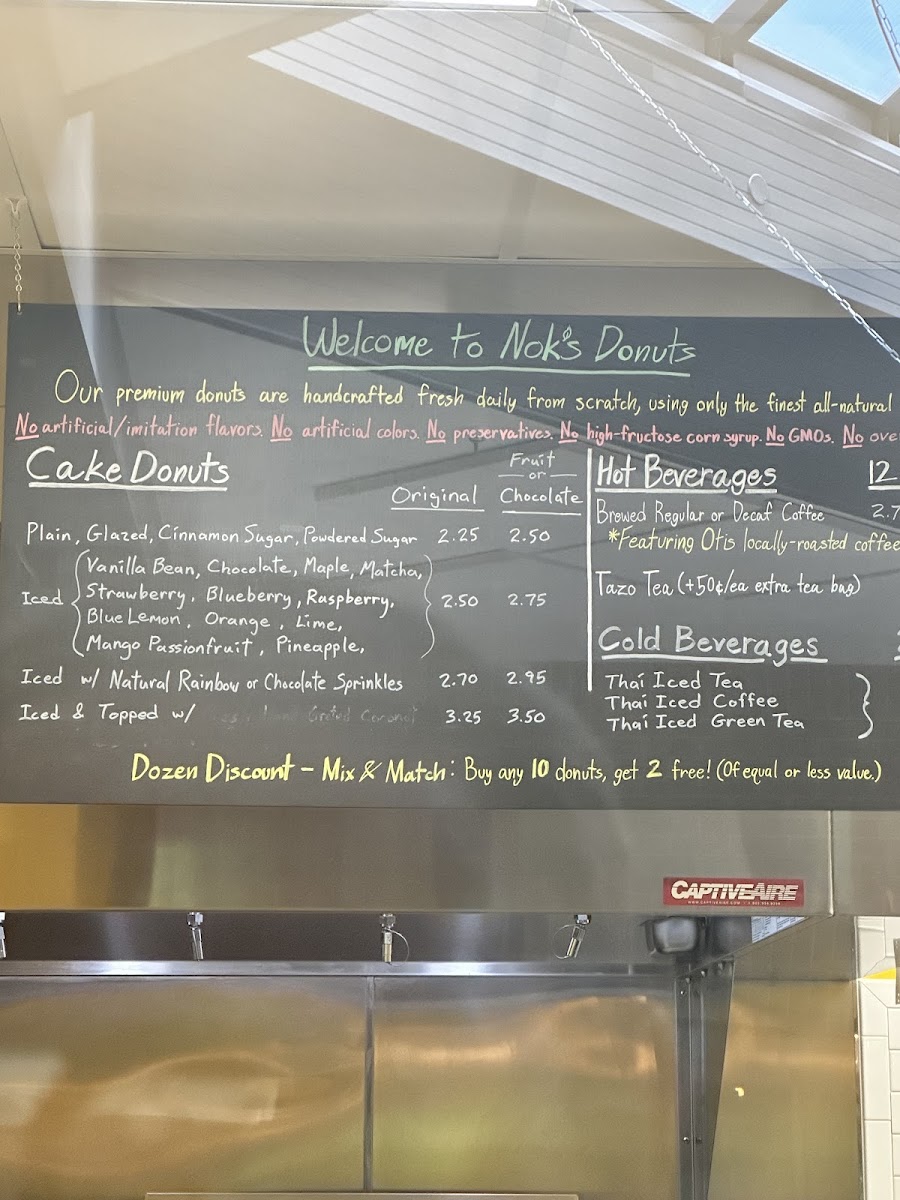 Welcome to Nok's Donuts
Our premium donuts are handcrafted fresh daily from scratch, using only the finest all-natural
No artificial/imitation flavors. No artificial colors. No preservatives. No high-fructose corn syrup. No GMOs. No
Cake Donuts
Original
Fruit
or
Chocolate
Plain, Glazed, Cinnamon Sugar, Powdered Sugar 2.25 2.50
Iced
Vanilla Bean, Chocolate, Maple, Matcha,
Strawberry, Blueberry, Raspberry,
Blue Lemon, Orange, Lime,
Mango Passionfruit, Pineapple,
2.50 2.75
Iced w/ Natural Rainbow or Chocolate Sprinkles 2.70 2.95
Iced & Topped w/ 3.25 3.50
Hot Beverages 12
Brewed Regular or Decaf Coffee 2.7
*Featuring Otis locally-roasted coffee
Tazo Tea (+50¢/ea extra tea bag)
Cold Beverages
Thai Iced Tea
Thai Iced Coffee
Thai Iced Green Tea
Dozen Discount - Mix & Match: Buy any 10 donuts, get 2 free! (Of equal or less value.)
CAPTIVEAIRE